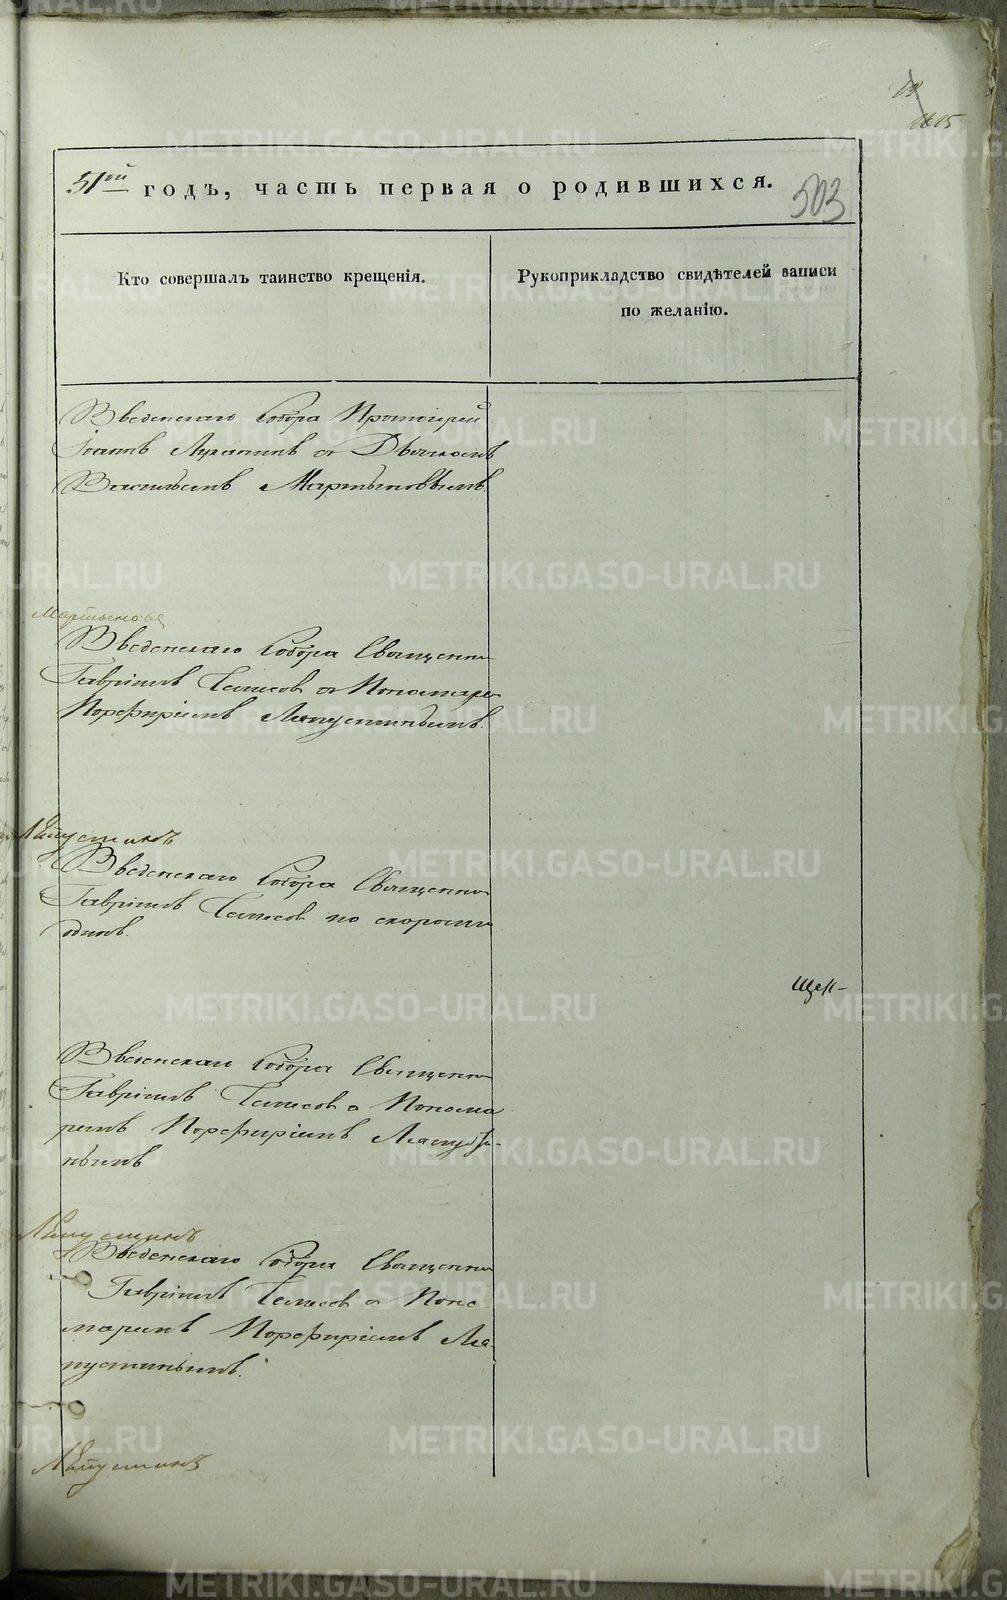 503
51ой годъ, часть первая о родившихся.
Кто совершалъ таинство крещенія.
Рукоприкладство свидѣтелей записи
по желанію.
Введенскаго Собора Протоіерей
Іоаннъ Луканинъ съ Дьякономъ
Васильемъ Мартыновымъ.
Мартыновъ
Введенскаго Собора Священни
Гавріилъ съ Пономаре
Порфиріемъ Ляпустинымъ.
Ляпустинъ
Введенскаго Собора Священни
Гавріилъ по скорости
одинъ.
Щел-
Введенскаго Собора Священни
Гавріилъ с Понома
ремъ Порфиріемъ Ляпусти-
нымъ
Ляпустинъ
Введенскаго Собора Священни
Гавріилъ съ Поно
маремъ Порфиріемъ Ля-
пустинымъ.
Ляпустинъ
METRIKI.GASO-URAL.RU